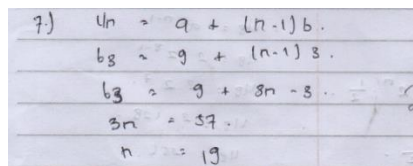 7.) Un = a + (n-1) b.
63 = 9 + (n-1) 3.
63 = 9 + 3n - 3.
3n = 57.
n = 19